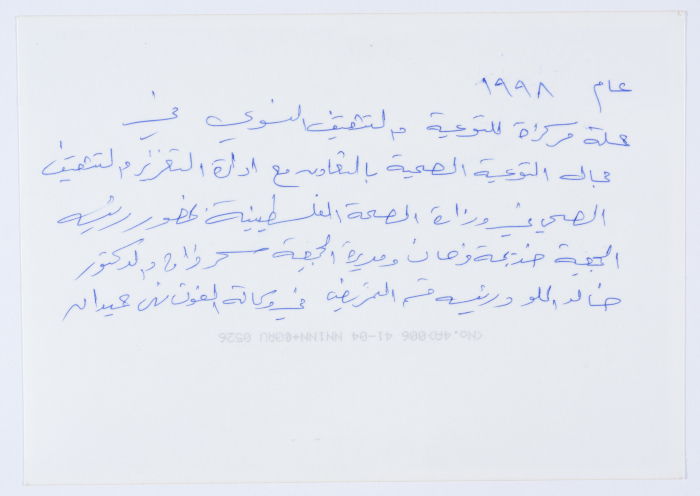 عام ١٩٩٨
حملة مركزة للتوعية والتثقيف النسوي في
مجال التوعية الصحية بالتعاون مع ادارة التعزيز والتثقيف
الصحي في وزارة الصحة الفلسطينية بحضور رئيسة
الجمعية خديجة ومديرة الجمعية سحر والدكتور
خالد ورئيسة قسم التمريض في وكالة الغوث نهى حميدان
<No.4A>006 41-04 NNINN+00AU 0526